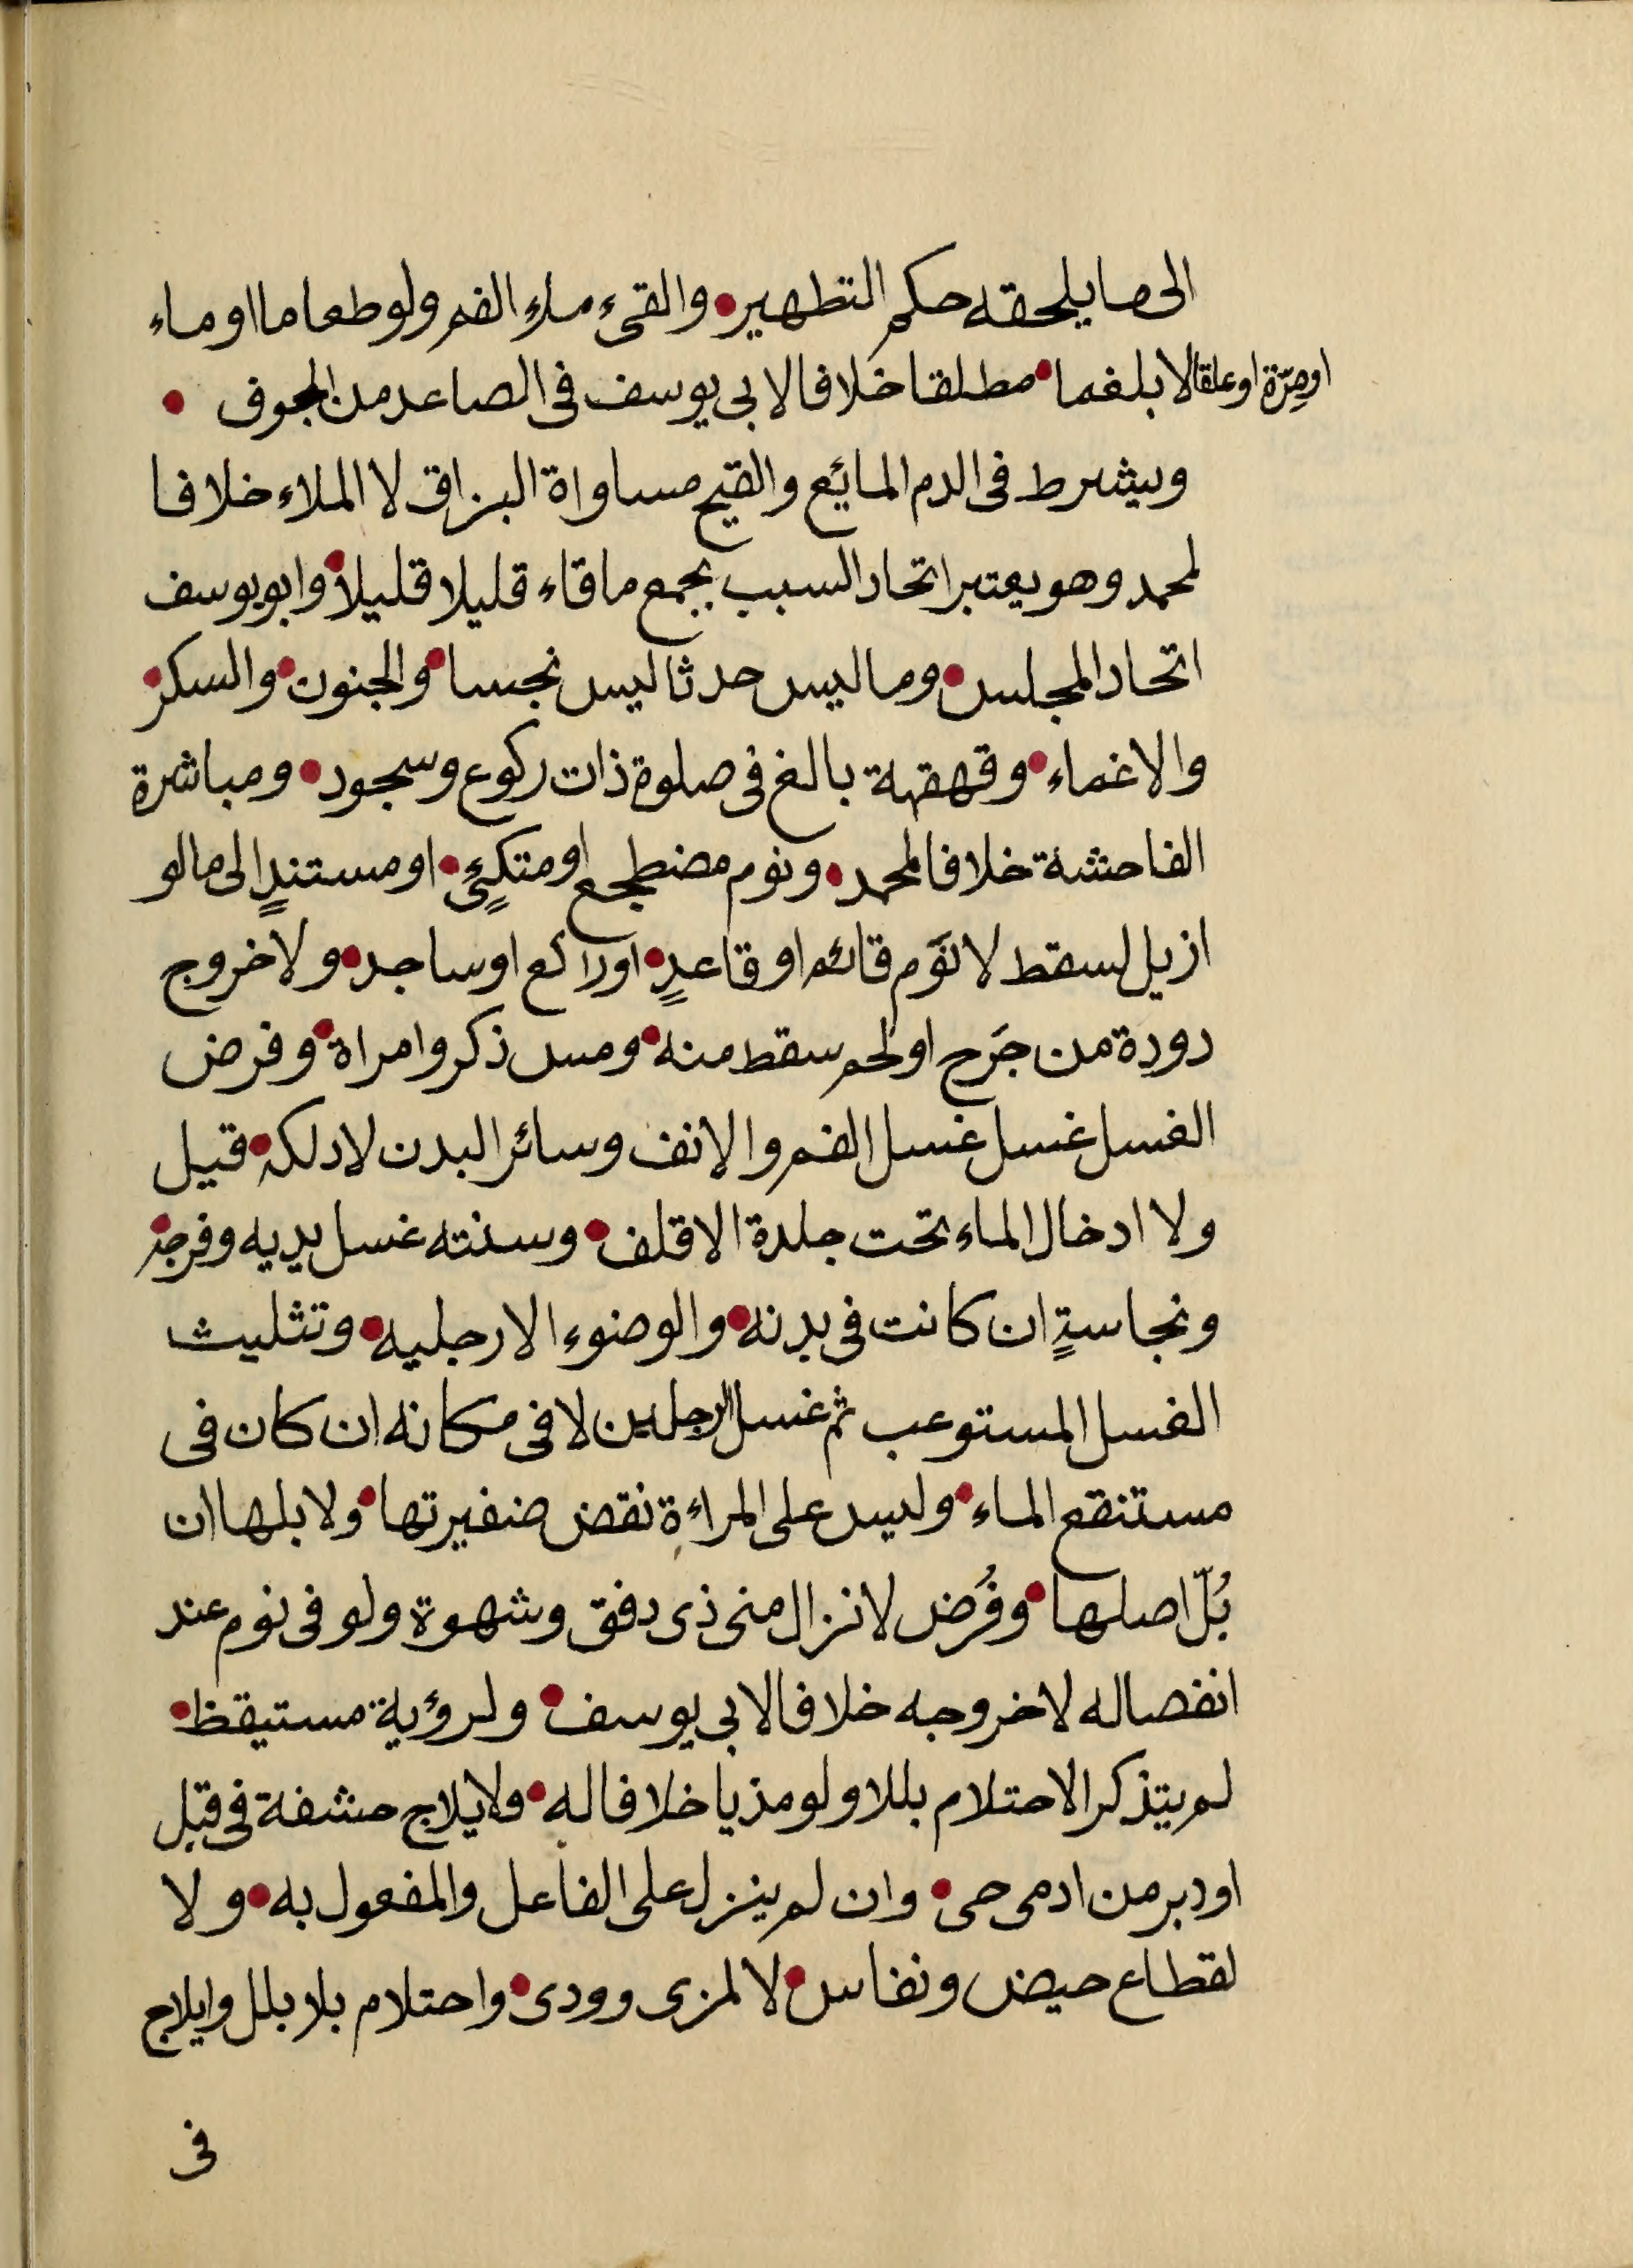 الى ما يلحقه حكم التطهير • والقىء ملء الفم ولو طعاما او ماء
او مِرّة او علقا لا بلغما • مطلقا خلافا لابى يوسف فى الصاعد من الجوف •
ويشرط فى الدم المائع والقيح مساواة البزاق لا الملاء خلافا
لمحمد وهو يعتبر اتحاد السبب بجمع ما قاء قليلا قليلا • وابو يوسف
اتحاد المجلس • وما ليس حدثا ليس نجسا • والجنون • والسكر •
والاغماء • وقهقهة بالغ فى صلوة ذات ركوع وسجود • ومباشرة
الفاحشة خلافا لمحمد • ونوم مضطجع او متكىءٍ • او مستندٍ الى ما لو
ازيل لسقط لا نَوم قائم او قاعدٍ • او راكع او ساجد • ولا خروج
دودة من جَرح او لحم سقط منه • ومس ذكر وامراة • وفرض
الغسل غسل غسل الفم والانف وسائر البدن لا دلكه • قيل
ولا ادخال الماء تحت جلدة الاقلف • وسنته غسل يديه وفرجه •
ونجاسةٍ ان كانت فى بدنه • والوضوء الا رجليه • وتثليث
الغسل المستوعب ثم غسل الرجلين لا فى مكانه ان كان فى
مستنقع الماء • وليس على المراءة نقض ضفيرتها • ولا بلها ان
بُلّ اصلها • وفُرض لانزال منى ذى دفق وشهوة ولو فى نوم عند
انفصاله لا خروجه خلافا لابى يوسف • ولرؤية مستيقظ •
لم يتذكر الاحتلام بللا ولو مذيا خلافا له • ولايلاج حشفة فى قبل
او دبر من ادمى حى • وان لم ينزل على الفاعل والمفعول به • ولا
لقطاع حيض ونفاس • لا لمزى وودى • واحتلام بلا بلل وايلاج
فى